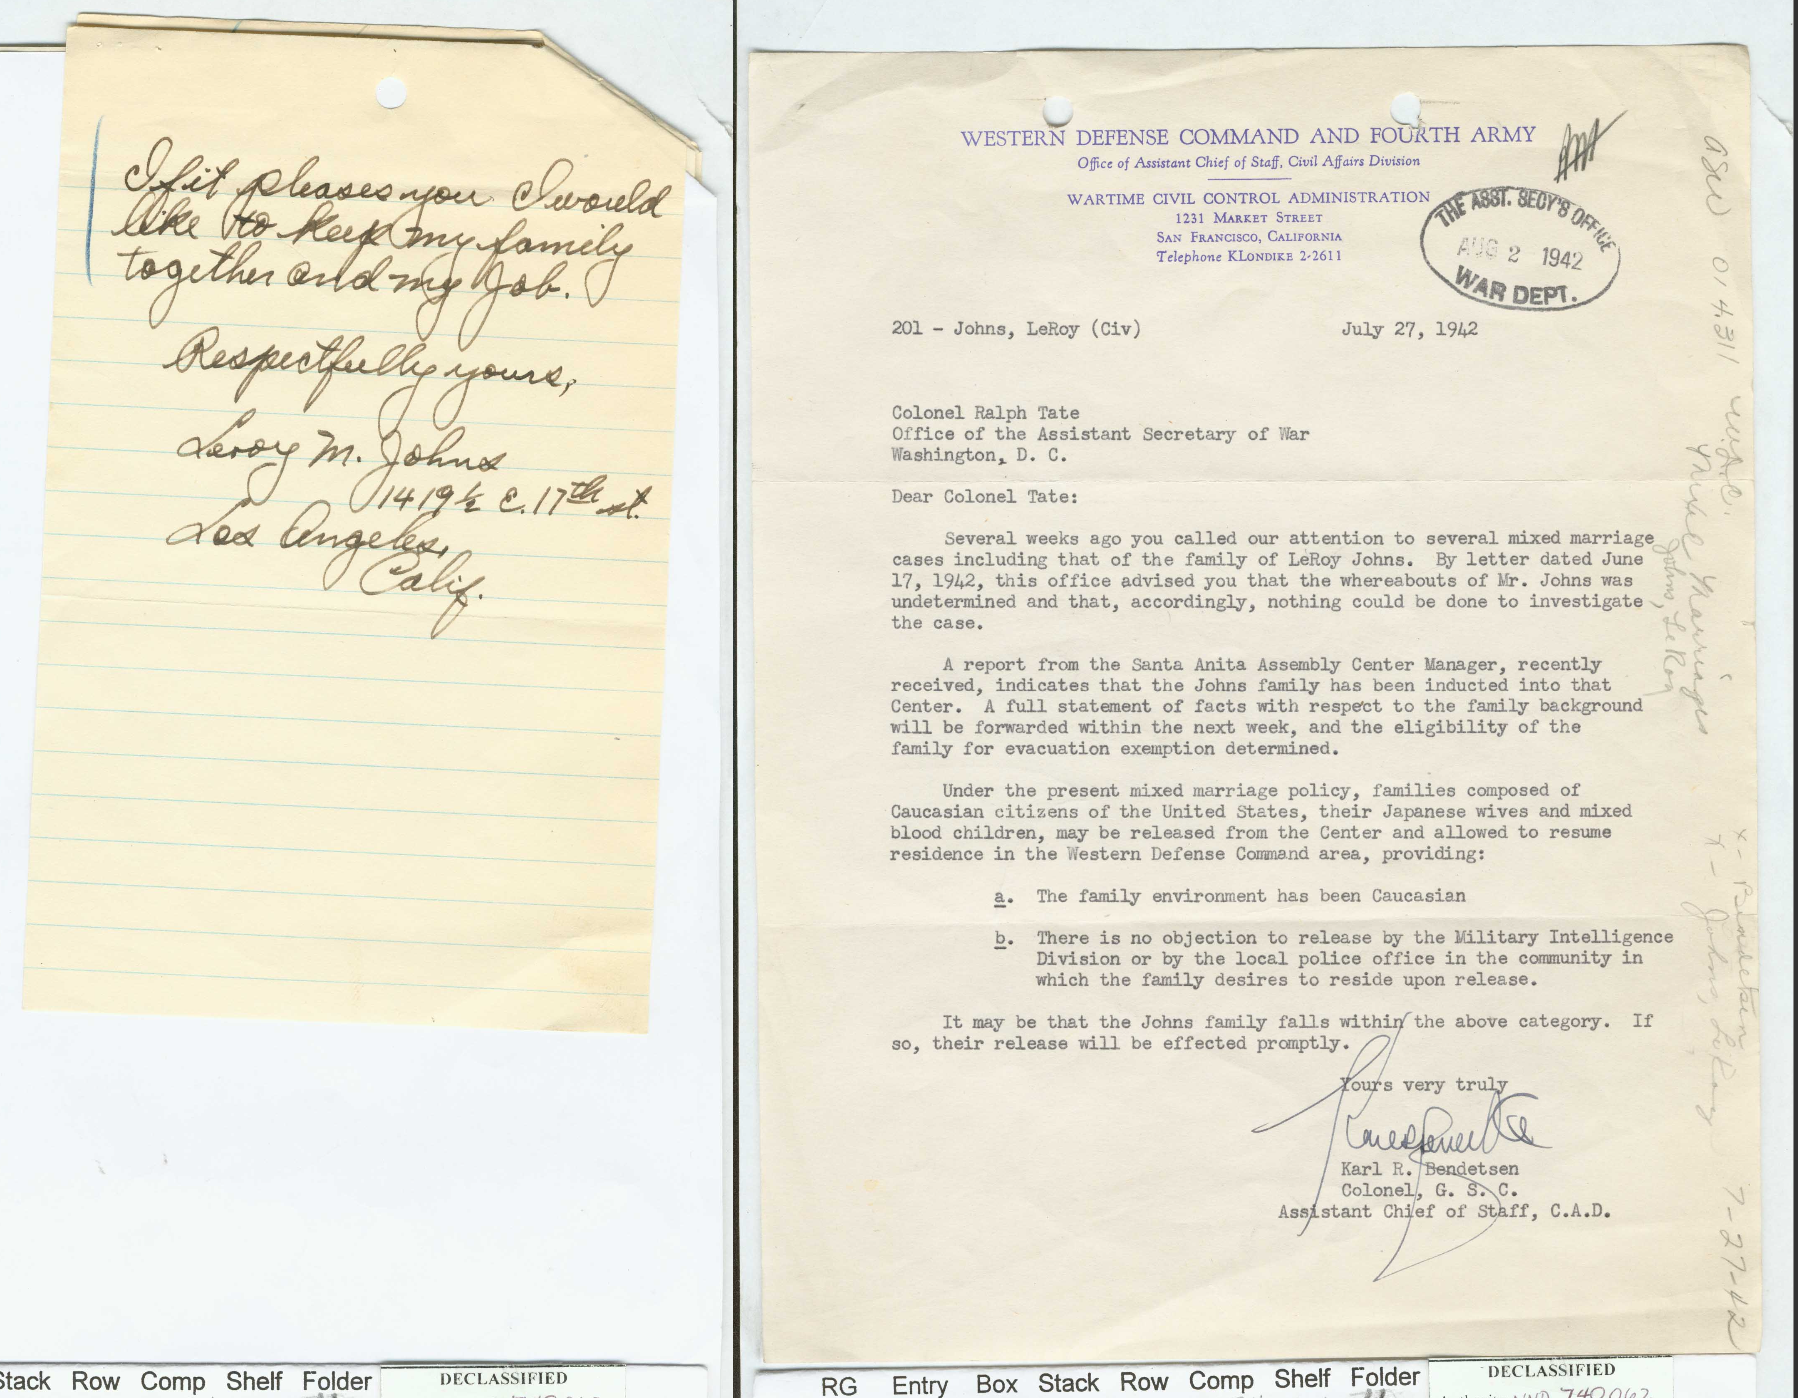 If it pleases you I would
like to keep my family
together and my job.
Respectfully yours,
Leroy M. Johns
1419½ E. 17th st.
Los Angeles,
Calif.
Stack Row Comp Shelf Folder
DECLASSIFIED
WESTERN DEFENSE COMMAND AND FOURTH ARMY
Office of Assistant Chief of Staff, Civil Affairs Division
WARTIME CIVIL CONTROL ADMINISTRATION
1231 MARKET STREET
SAN FRANCISCO, CALIFORNIA
Telephone KLONDIKE 2-2611
THE ASST. SECY'S OFFICE
AUG 2 1942
WAR DEPT.
201 - Johns, LeRoy (Civ) July 27, 1942
Colonel Ralph Tate
Office of the Assistant Secretary of War
Washington, D. C.
Dear Colonel Tate:
Several weeks ago you called our attention to several mixed marriage
cases including that of the family of LeRoy Johns. By letter dated June
17, 1942, this office advised you that the whereabouts of Mr. Johns was
undetermined and that, accordingly, nothing could be done to investigate
the case.
A report from the Santa Anita Assembly Center Manager, recently
received, indicates that the Johns family has been inducted into that
Center. A full statement of facts with respect to the family background
will be forwarded within the next week, and the eligibility of the
family for evacuation exemption determined.
Under the present mixed marriage policy, families composed of
Caucasian citizens of the United States, their Japanese wives and mixed
blood children, may be released from the Center and allowed to resume
residence in the Western Defense Command area, providing:
a. The family environment has been Caucasian
b. There is no objection to release by the Military Intelligence
Division or by the local police office in the community in
which the family desires to reside upon release.
It may be that the Johns family falls within the above category. If
so, their release will be effected promptly.
Yours very truly
Karl R. Bendetsen
Colonel, G. S. C.
Assistant Chief of Staff, C.A.D.
ASW 014.311 W.D.C.
Mixed Marriages
Johns, LeRoy
x - Bendetsen
x - Johns, LeRoy
7-27-42
RG Entry Box Stack Row Comp Shelf Folder
DECLASSIFIED